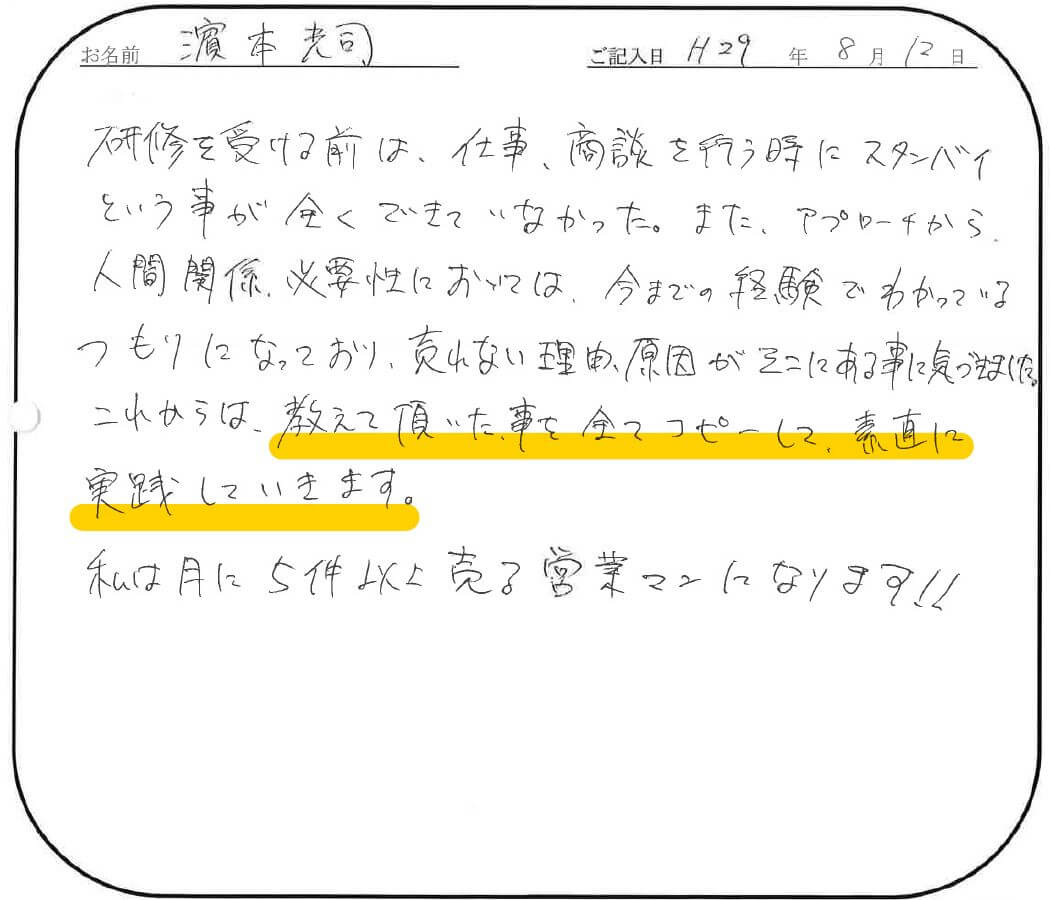 お名前 濱本光司 ご記入日 H29 年 8 月 12 日
研修を受ける前は、仕事、商談を行う時にスタンバイ
という事が全くできていなかった。また、アプローチから、
人間関係、必要性においては、今までの経験でわかっている
つもりになっており、売れない理由、原因がそこにある事に気づきました。
これからは、教えて頂いた事を全てコピーして、素直に
実践していきます。
私は月に5件以上売る営業マンになります!!